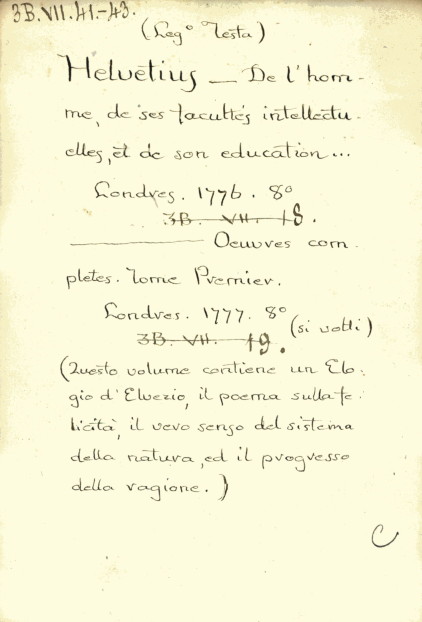 3B.VII.41.-43.
(Leg° Testa)
Helvetius — De l'hom-
me, de ses facultés intellectu-
elles, et de son education...
Londres. 1776. 8°
3B. VII. 18.
——— Oeuvres com
pletes. Tome Premier.
Londres. 1777. 8°
3B. VII. 19. (si volti)
(Questo volume contiene un Elo-
gio d'Elvezio, il poema sulla fe-
licità, il vero senso del sistema
della natura, ed il progresso
della ragione.)
C